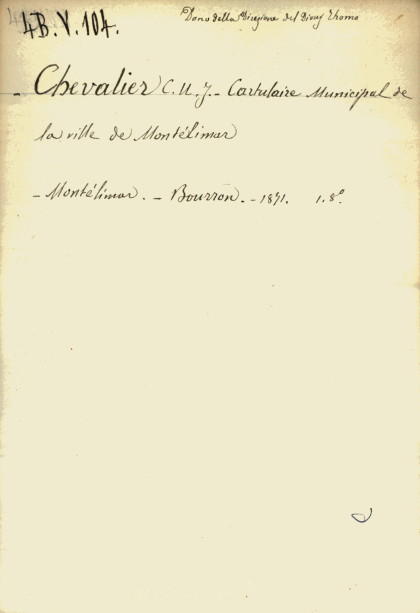 4B.V.104.
Dono della Direzione del Giorn Thomo
- Chevalier C.U.J. - Cartulaire Municipal de
la ville de Montélimar
- Montélimar. - Bourron. - 1871. 1. 8°.